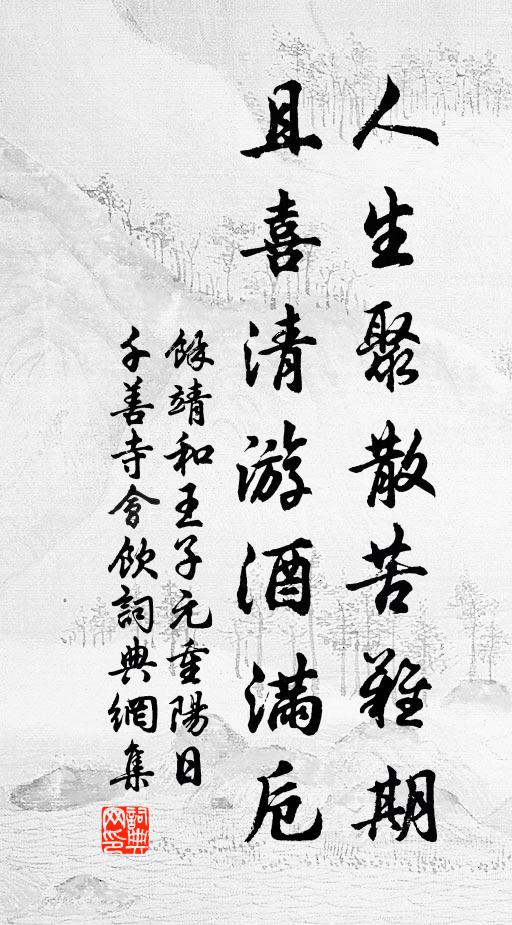 人生聚散苦難期
且喜清游酒滿卮
餘靖和王子元重陽日
千善寺會飲詞典網集
詞典
网印